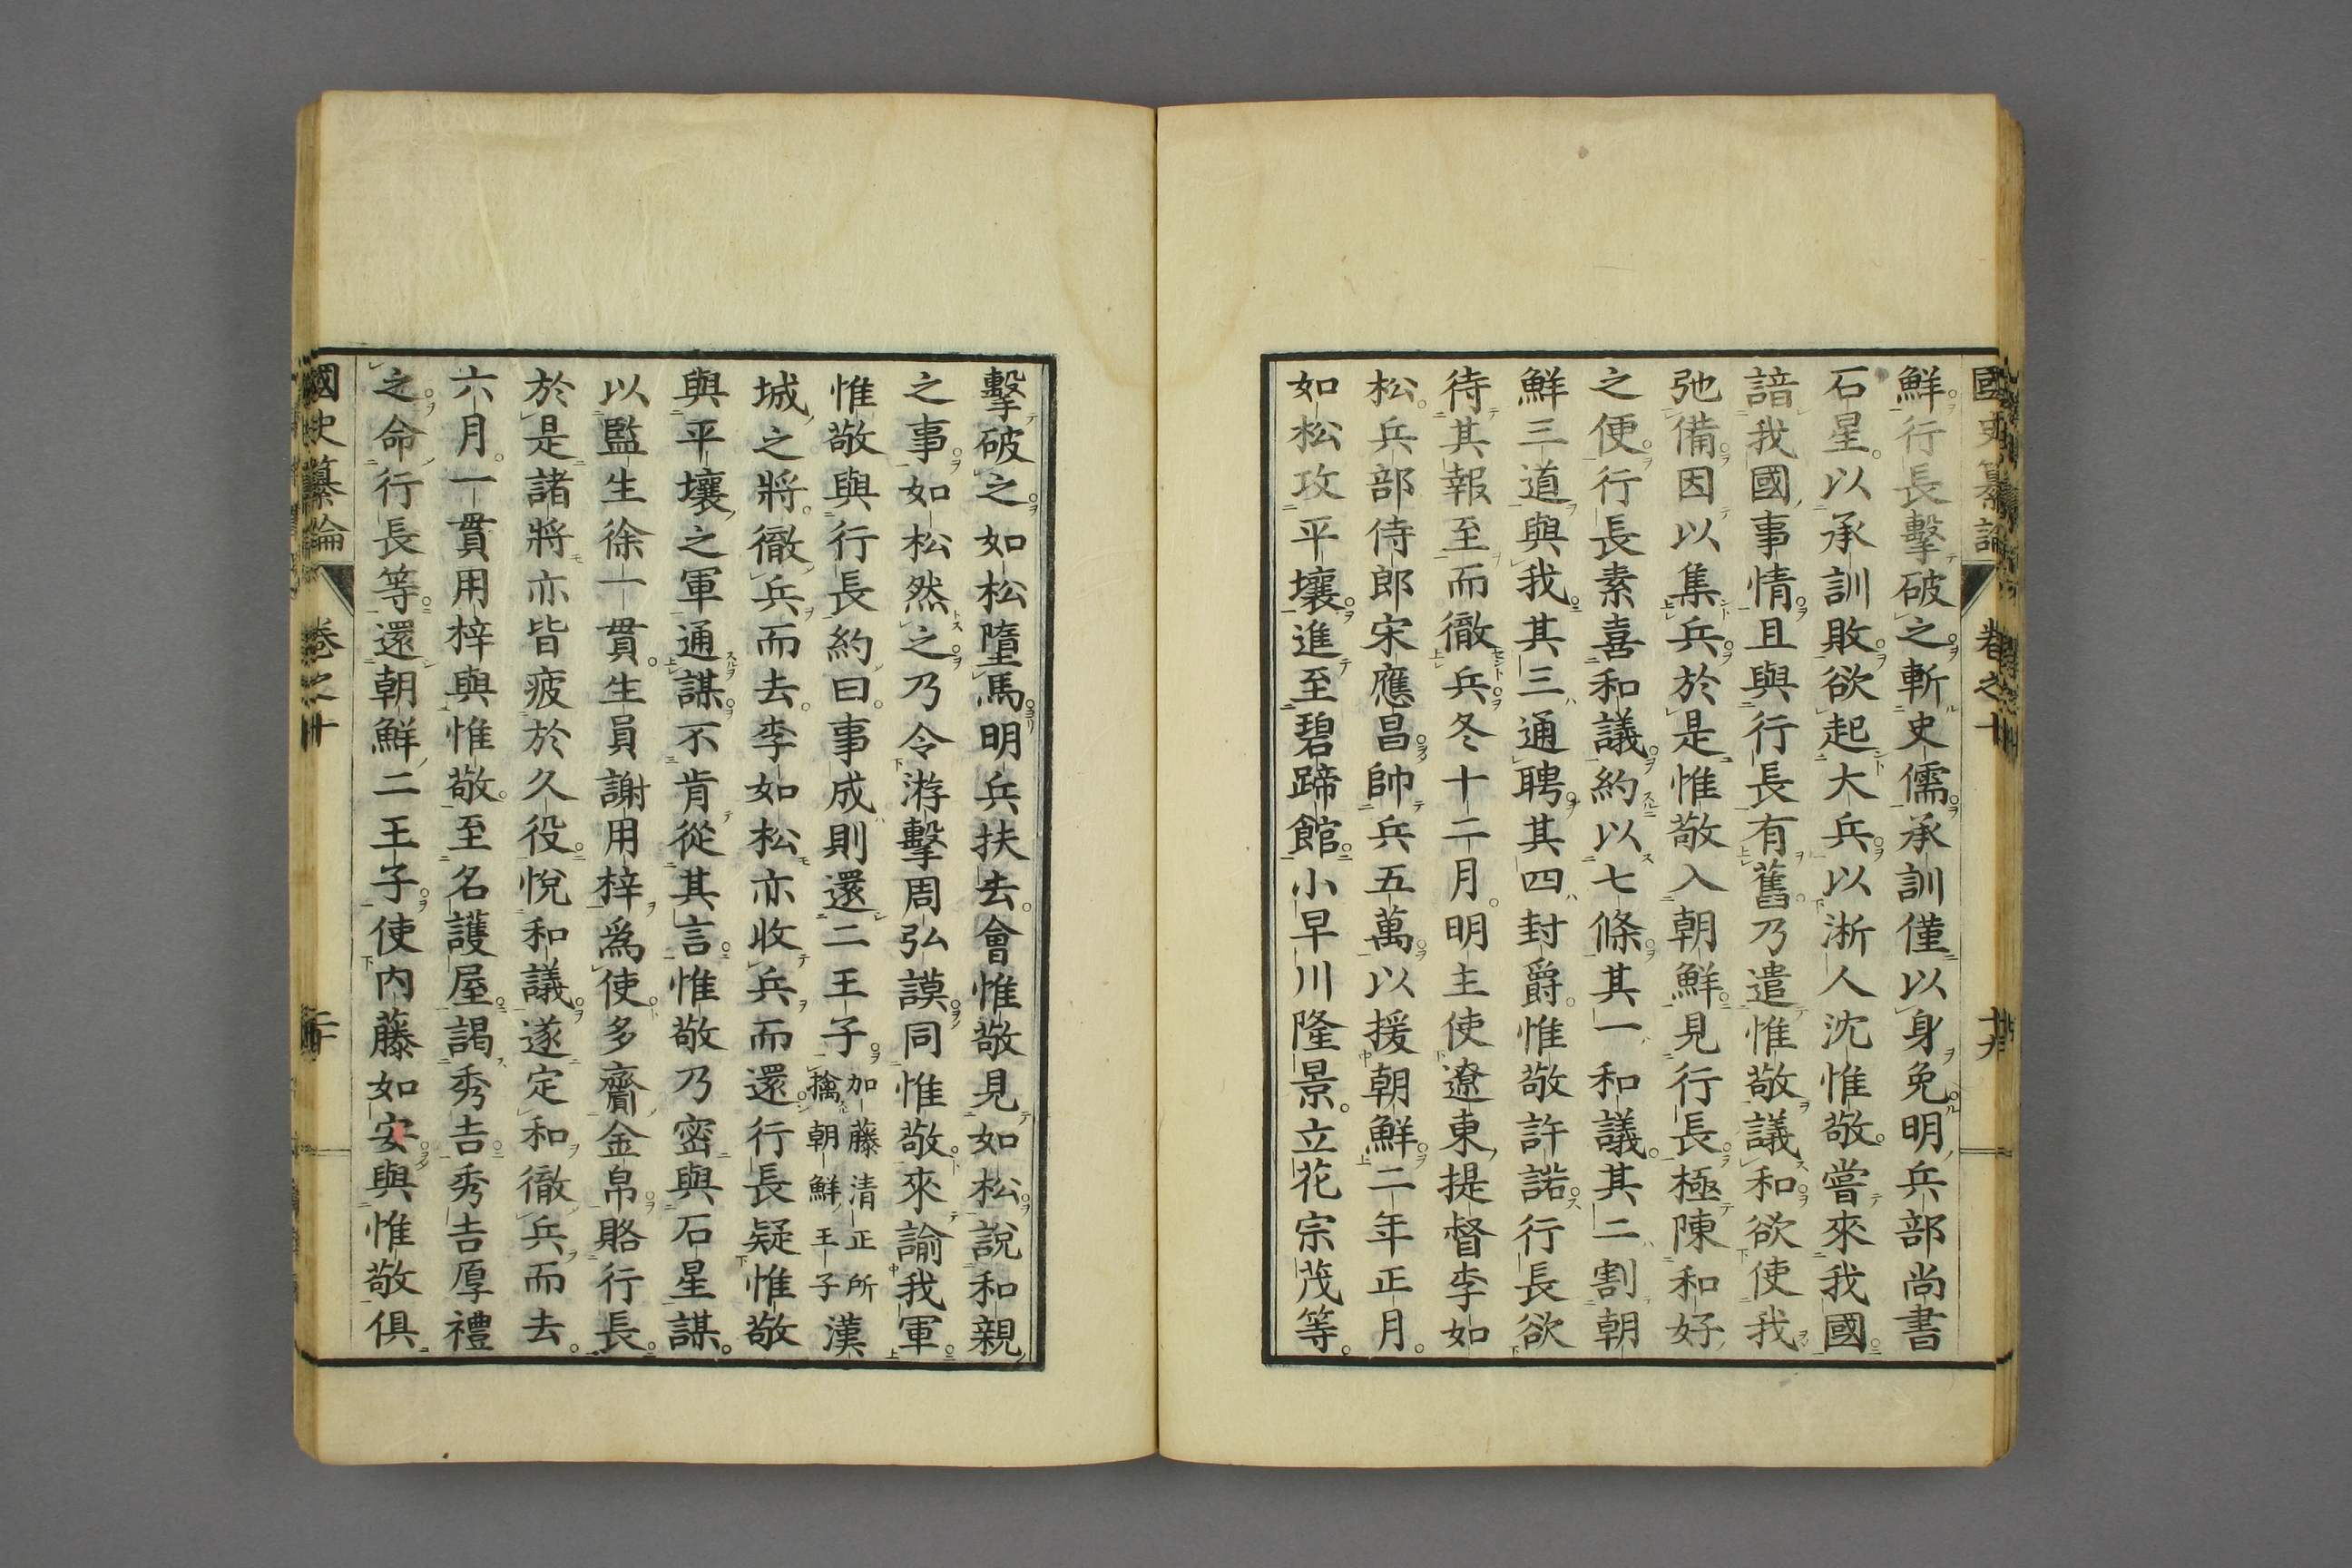 國史纂論 卷之十 十九
鮮行長擊破之斬史儒承訓僅以身免明兵部尚書
石星以承訓敗欲起大兵以浙人沈惟敬嘗來我國
諳我國事情且與行長有舊乃遣惟敬議和欲使我
弛備因以集兵於是惟敬入朝鮮見行長極陳和好
之便行長素喜和議約以七條其一和議其二割朝
鮮三道與我其三通聘其四封爵惟敬許諾行長欲
待其報至而徹兵冬十二月明主使遼東提督李如
松兵部侍郎宋應昌帥兵五萬以援朝鮮二年正月
如松攻平壤進至碧蹄館小早川隆景立花宗茂等
擊破之如松墮馬明兵扶去會惟敬見如松說和親
之事如松然之乃令游擊周弘謨同惟敬來諭我軍
惟敬與行長約曰事成則還二王子加藤清正所擒朝鮮王子漢
城之將徹兵而去李如松亦收兵而還行長疑惟敬
與平壤之軍通謀不肯從其言惟敬乃密與石星謀
以監生徐一貫生員謝用梓爲使多齎金帛賂行長
於是諸將亦皆疲於久役悅和議遂定和徹兵而去
六月一貫用梓與惟敬至名護屋謁秀吉秀吉厚禮
之命行長等還朝鮮二王子使內藤如安與惟敬俱
國史纂論 卷之十 二十